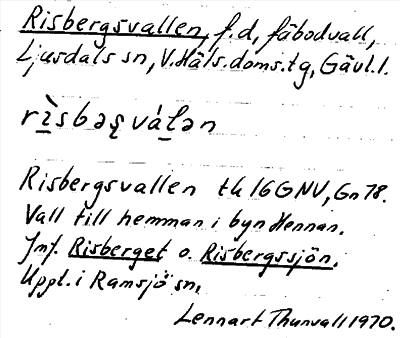 Risbergsvallen, f.d, fäbodvall,
Ljusdals sn, V.Häls.doms.tg, Gävl.l.
rìsbəʂválən
Risbergsvallen tk 16G NV, Gn 78.
Vall till hemman i byn Hennan.
Jmf. Risberget o. Risbergssjön.
Uppt. i Ramsjö sn,
Lennart Thunvall 1970.